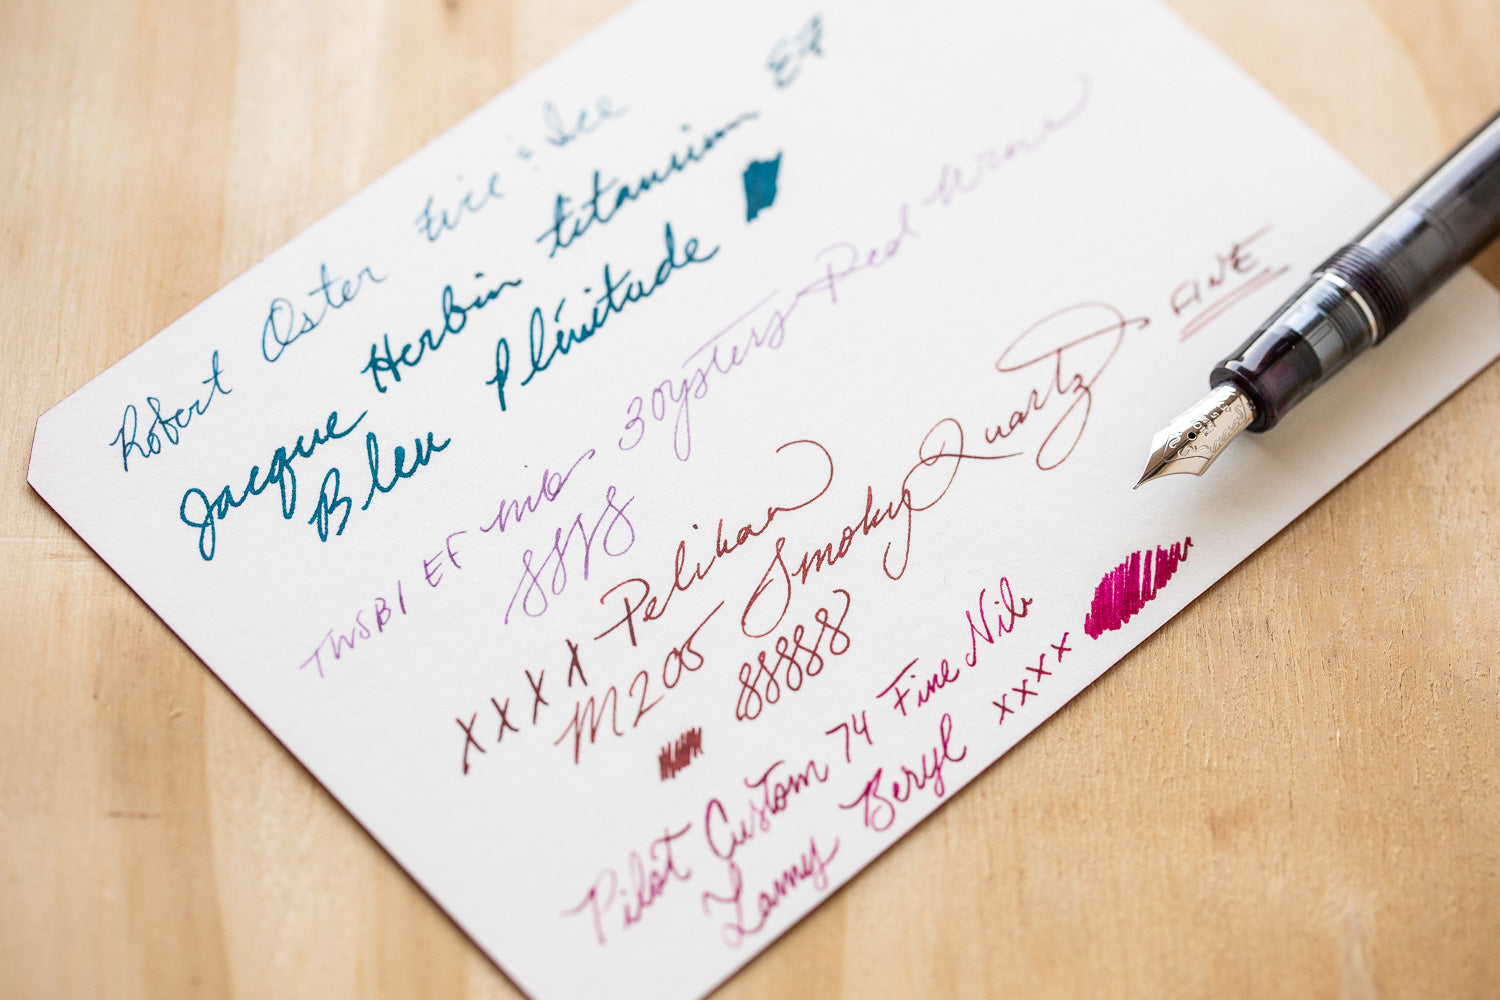 Robert Oster Fire & Ice EF
Jacque Herbin titanium
Bleu Plénitude
TWSBI EF nib 3 Oysters Red Wine
8888
xxxx Pelikan
M205 Smoky Quartz FINE
88888
Pilot Custom 74 Fine Nib
Lamy Beryl xxxx